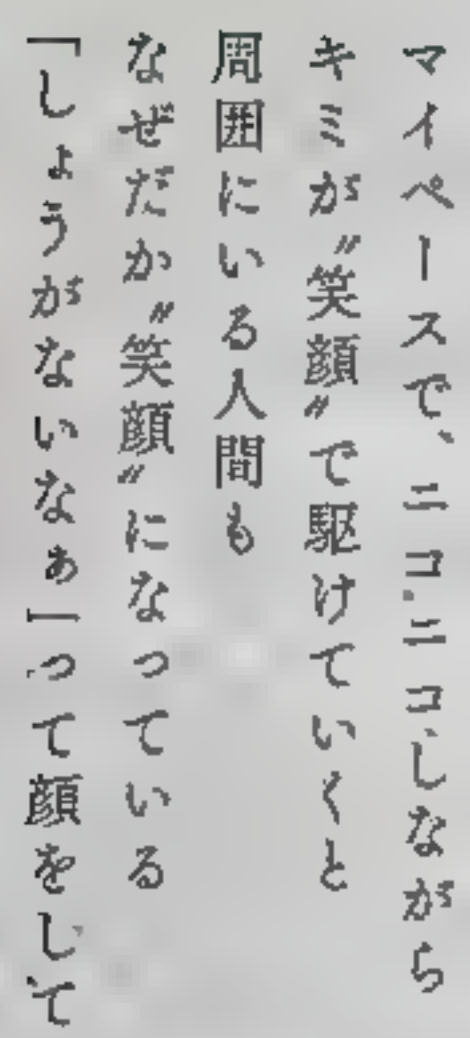 マイペースで、ニコニコしながら
キミが〝笑顔〟で駆けていくと
周囲にいる人間も
なぜだか〝笑顔〟になっている
「しょうがないなぁ」って顔をして